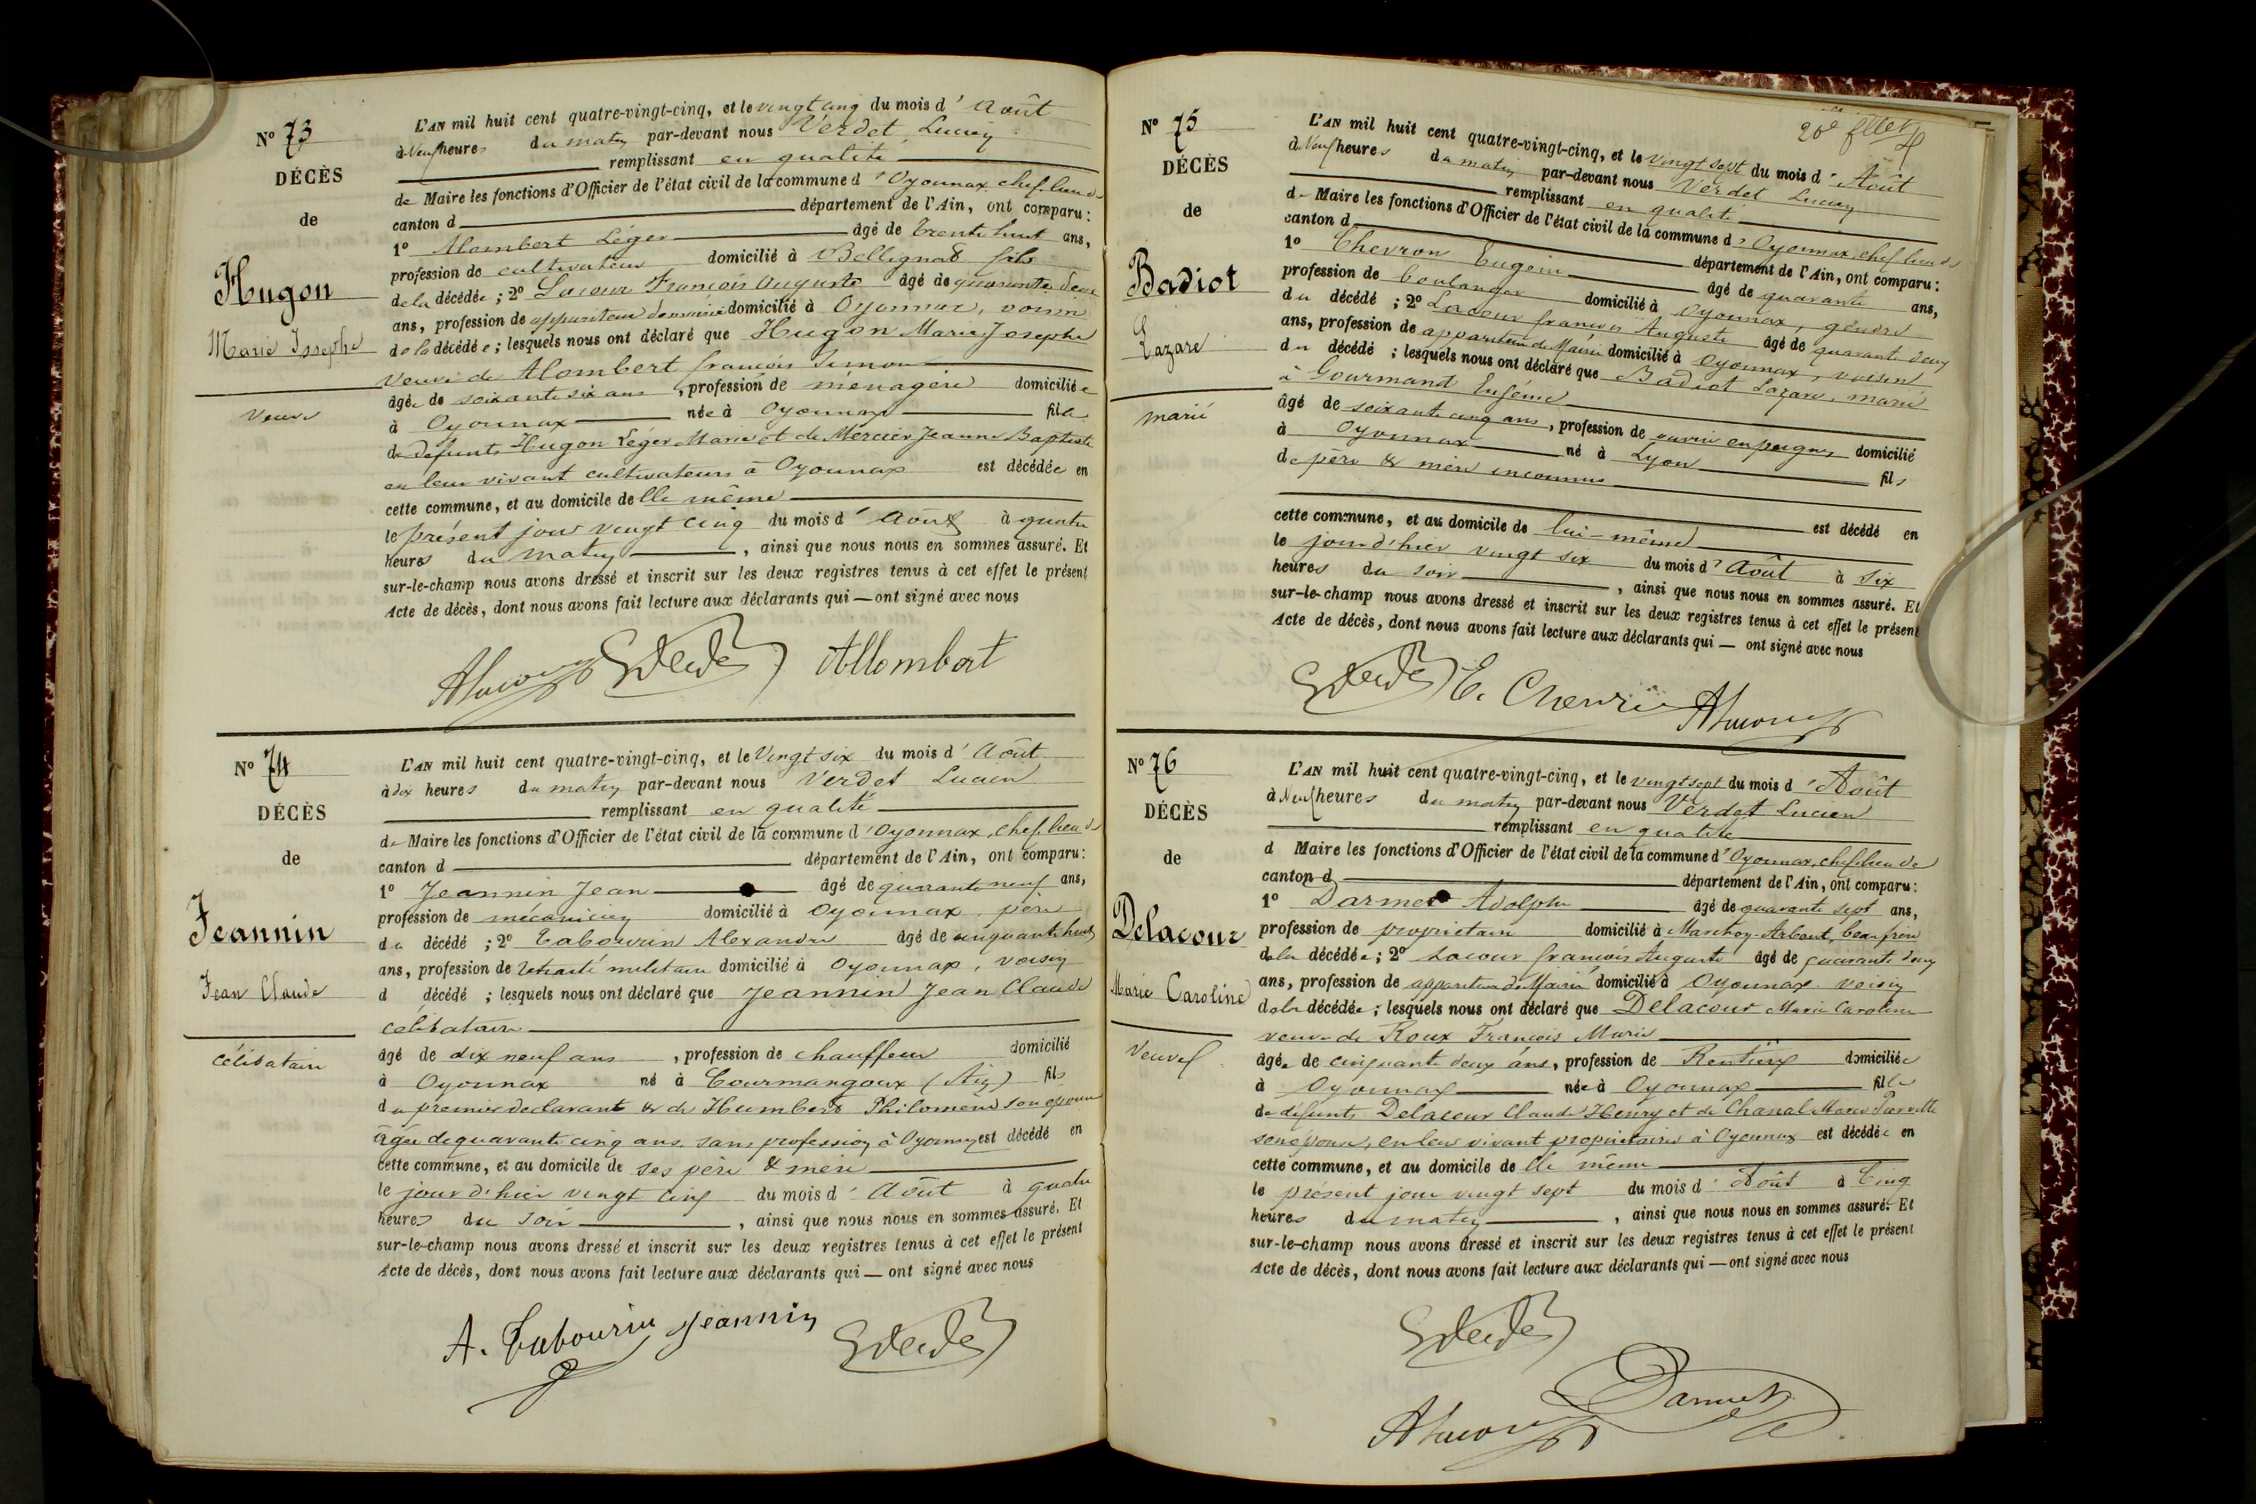 N° 73
DÉCÈS
de
Hugon
Marie Josephe
Veuve
L'AN mil huit cent quatre-vingt-cinq, et le vingt cinq du mois d'Août
à Neuf heures du matin par-devant nous Verdet Lucien
remplissant en qualité
de Maire les fonctions d'Officier de l'état civil de la commune d'Oyonnax, chef lieu de
canton d département de l'Ain, ont comparu :
1° Alombert Léger âgé de trente huit ans,
profession de cultivateur domicilié à Bellignat fils
de la décédée ; 2° Lacour François Auguste âgé de quarante deux
ans, profession de appariteur de mairie domicilié à Oyonnax, voisin
de la décédée ; lesquels nous ont déclaré que Hugon Marie Josephe
veuve de Alombert françois Simon
âgée de soixante six ans, profession de ménagère domiciliée
à Oyonnax née à Oyonnax fille
de défunts Hugon Léger Marie et de Mercier Jeanne Baptiste
en leur vivant cultivateurs à Oyonnax est décédée en
cette commune, et au domicile de lle même
le présent jour vingt cinq du mois d'Août à quatre
heures du matin, ainsi que nous nous en sommes assuré. Et
sur-le-champ nous avons dressé et inscrit sur les deux registres tenus à cet effet le présent
Acte de décès, dont nous avons fait lecture aux déclarants qui — ont signé avec nous
Allombert
N° 74
DÉCÈS
de
Jeannin
Jean Claude
Célibataire
L'AN mil huit cent quatre-vingt-cinq, et le Vingt six du mois d'Août
à dix heures du matin par-devant nous Verdet Lucien
remplissant en qualité
de Maire les fonctions d'Officier de l'état civil de la commune d'Oyonnax, chef lieu de
canton d département de l'Ain, ont comparu :
1° Jeannin Jean âgé de quarante neuf ans,
profession de mécanicien domicilié à Oyonnax père
du décédé ; 2° Tabourin Alexandre âgé de cinquante huit
ans, profession de retraité militaire domicilié à Oyonnax, voisin
d décédé ; lesquels nous ont déclaré que Jeannin Jean Claude
célibataire
âgé de dix neuf ans, profession de chauffeur domicilié
à Oyonnax né à Courmangoux (Ain) fils
du premier declarant & de Humbert Philomène son épouse
âgée de quarante cinq ans, sans profession à Oyonnax est décédé en
cette commune, et au domicile de ses père & mère
le jour d'hier vingt cinq du mois d'Août à quatre
heures du soir, ainsi que nous nous en sommes assuré. Et
sur-le-champ nous avons dressé et inscrit sur les deux registres tenus à cet effet le présent
Acte de décès, dont nous avons fait lecture aux déclarants qui — ont signé avec nous
A. Tabourin Jeannin
20e fllet
N° 75
DÉCÈS
de
Badiot
Lazare
marié
L'AN mil huit cent quatre-vingt-cinq, et le vingt sept du mois d'Août
à Neuf heures du matin par-devant nous Verdet Lucien
remplissant en qualité
de Maire les fonctions d'Officier de l'état civil de la commune d'Oyonnax, chef lieu de
canton d département de l'Ain, ont comparu :
1° Chevron Eugène âgé de quarante ans,
profession de boulanger domicilié à Oyonnax, gendre
du décédé ; 2° Lacour françois Auguste âgé de quarante deux
ans, profession de appariteur de Mairie domicilié à Oyonnax, voisin
du décédé ; lesquels nous ont déclaré que Badiot Lazare, marié
à Gourmand Eugénie
âgé de soixante cinq ans, profession de ouvrier en peignes domicilié
à Oyonnax né à Lyon fils
de père & mère inconnus
est décédé en
cette commune, et au domicile de lui-même
le jour d'hier vingt six du mois d'Août à Six
heures du soir, ainsi que nous nous en sommes assuré. Et
sur-le-champ nous avons dressé et inscrit sur les deux registres tenus à cet effet le présent
Acte de décès, dont nous avons fait lecture aux déclarants qui — ont signé avec nous
N° 76
DÉCÈS
de
Delacour
Marie Caroline
Veuve
L'AN mil huit cent quatre-vingt-cinq, et le vingt sept du mois d'Août
à Neuf heures du matin par-devant nous Verdet Lucien
remplissant en qualité
d Maire les fonctions d'Officier de l'état civil de la commune d'Oyonnax, chef lieu de
canton d département de l'Ain, ont comparu :
1° Darmet Adolphe âgé de quarante sept ans,
profession de propriétaire domicilié à Marchon-Arbent, beau frère
de la décédée ; 2° Lacour françois Auguste âgé de quarante deux
ans, profession de appariteur de Mairie domicilié à Oyonnax voisin
de la décédée ; lesquels nous ont déclaré que Delacour Marie Caroline
veuve de Roux François Marie
âgée de cinquante deux ans, profession de Rentière domiciliée
à Oyonnax née à Oyonnax fille
de défunts Delacour Claude Henry et de Chanal Marie Pierrette
son épouse, en leur vivant propriétaires à Oyonnax est décédée en
cette commune, et au domicile de lle même
le présent jour vingt sept du mois d'Août à Cinq
heures du matin, ainsi que nous nous en sommes assuré. Et
sur-le-champ nous avons dressé et inscrit sur les deux registres tenus à cet effet le présent
Acte de décès, dont nous avons fait lecture aux déclarants qui — ont signé avec nous
Darmet